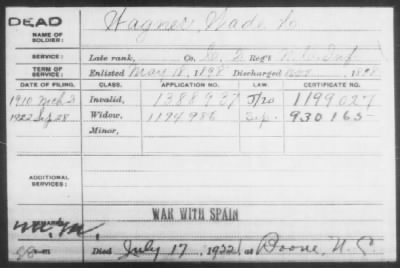 DEAD
NAME OF SOLDIER:
Wagner, Wade
SERVICE:
Late rank, Co. Reg't N.C. Inf
TERM OF SERVICE:
Enlisted May 18, 1898 Discharged 1898
DATE OF FILING. CLASS. APPLICATION NO. LAW. CERTIFICATE NO.
1910 Mch 3 Invalid, 1388937 1199027
1922 28 Widow, 1194986 930165
Minor,
ADDITIONAL SERVICES:
WAR WITH SPAIN
REMARKS:
Died July 17, 1922, at Boone, N.C.